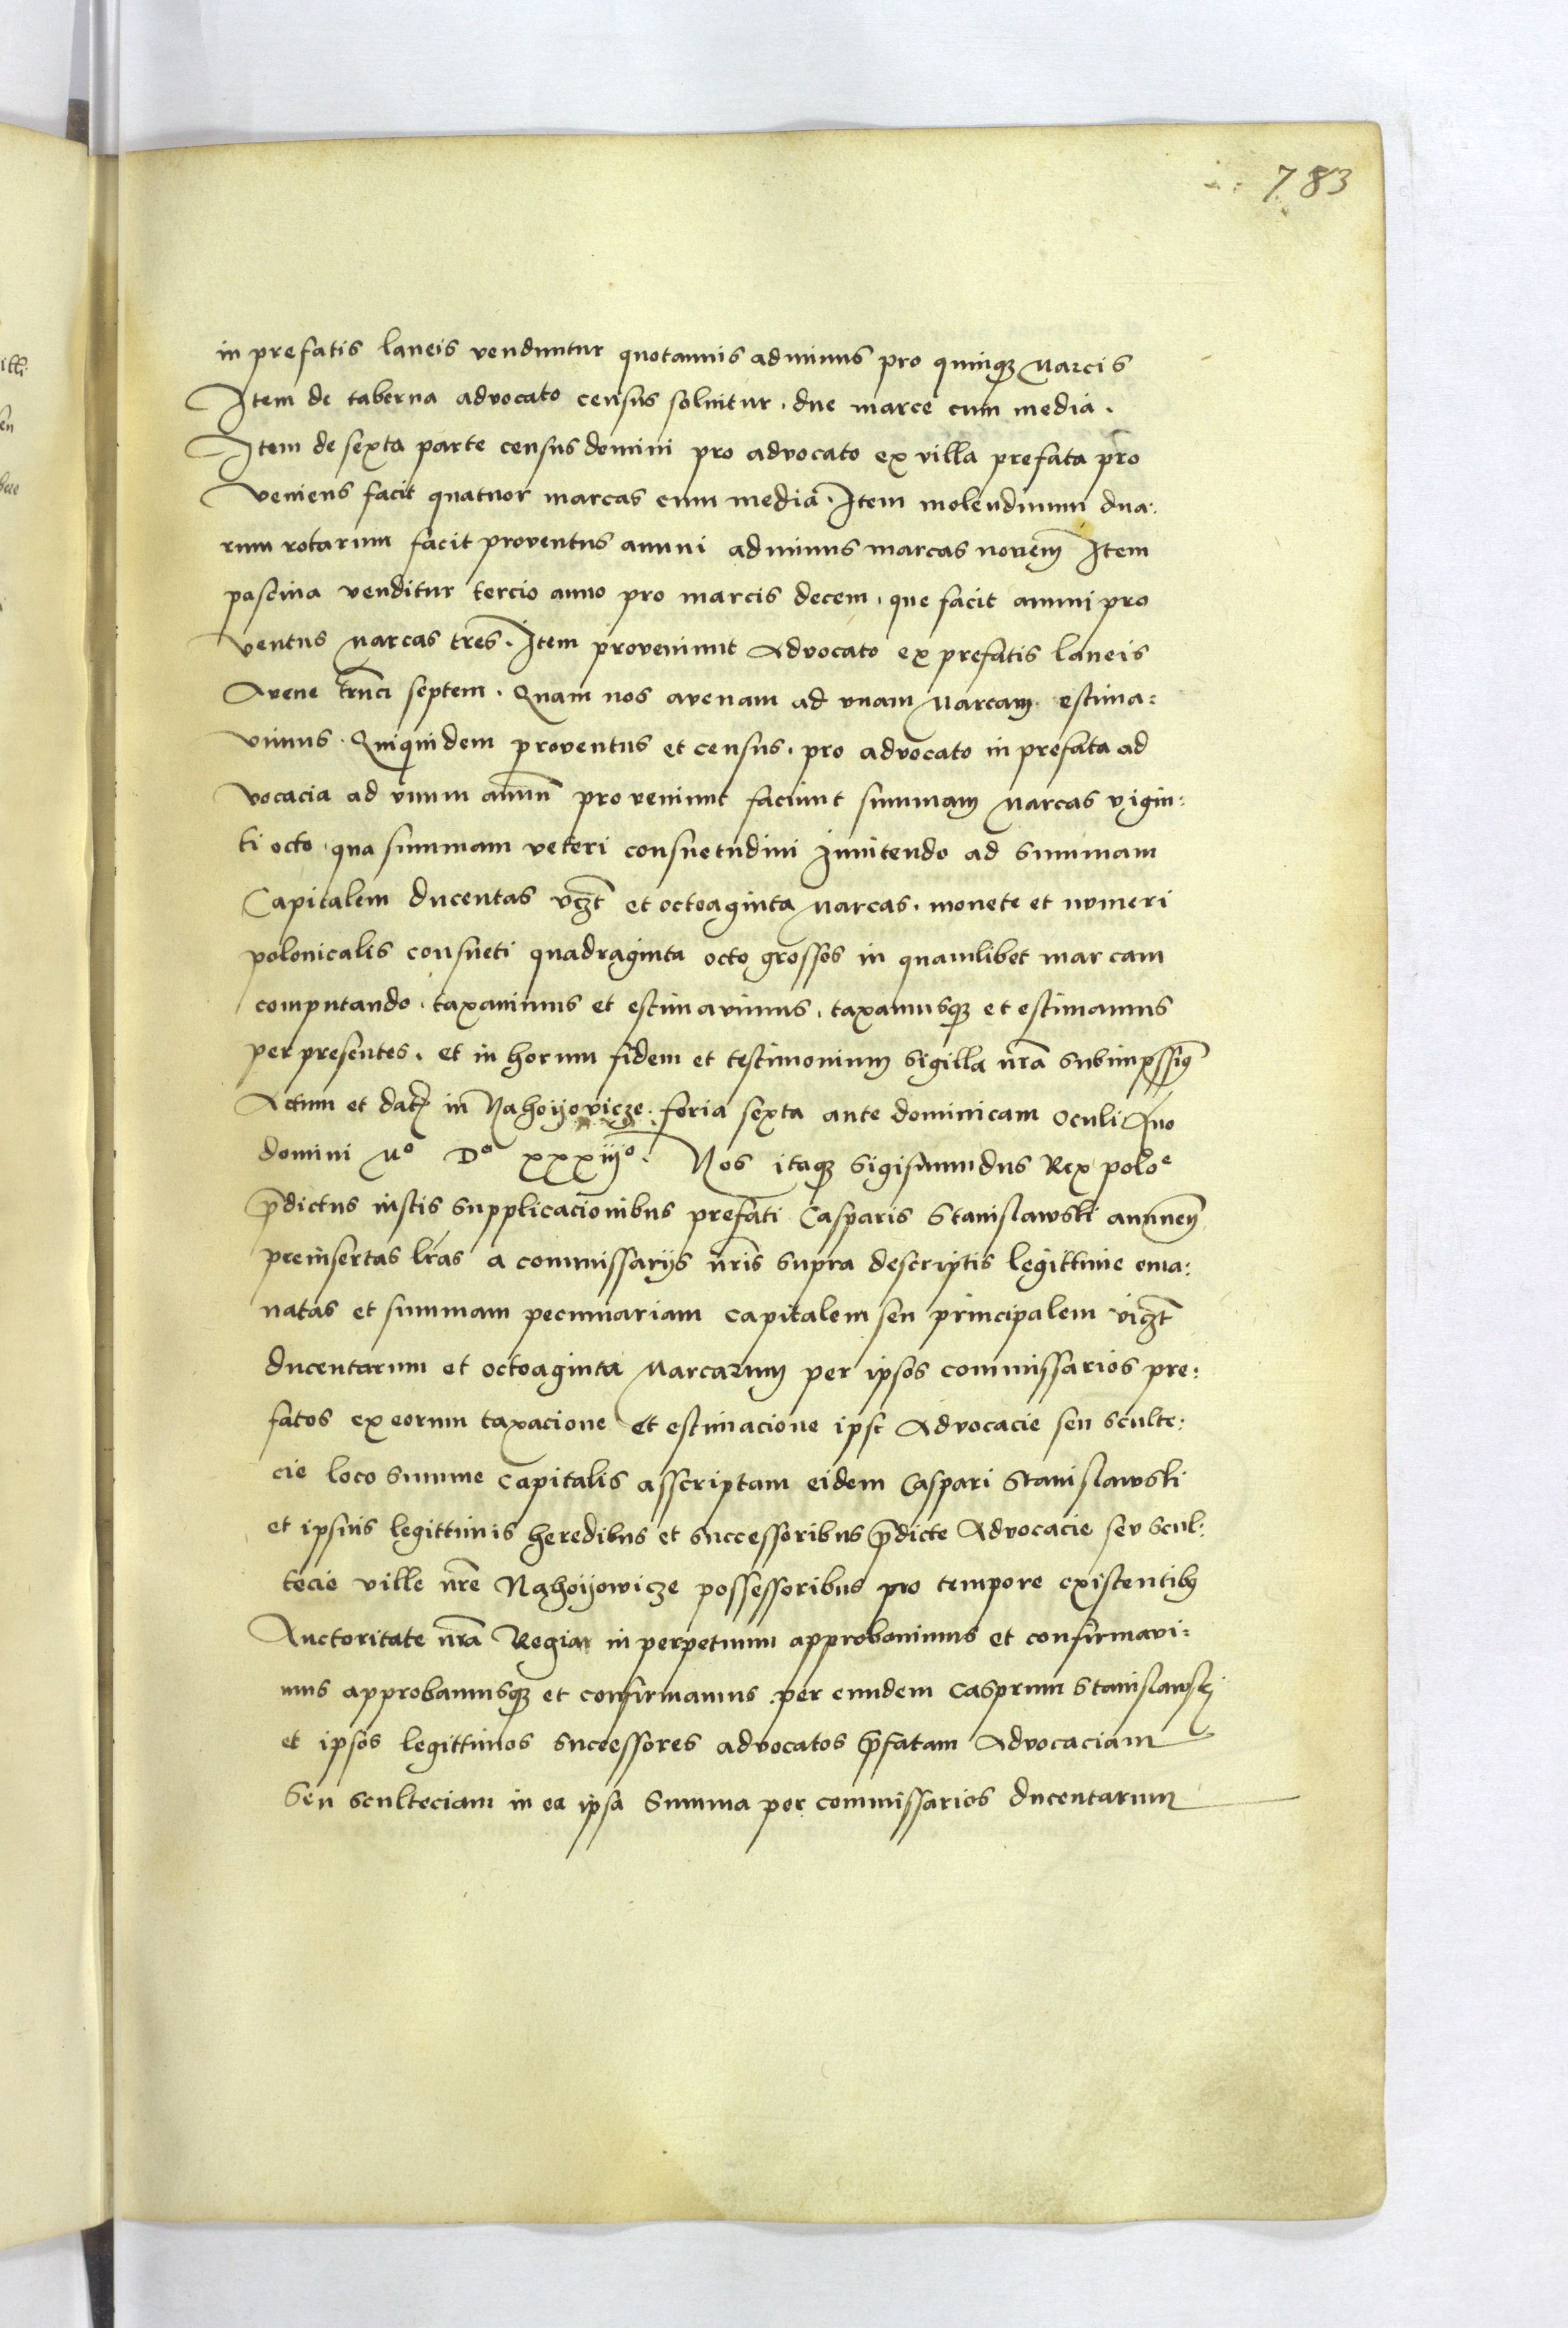 783
in prefatis laneis venduntur quotannis adminus pro quinqꝫ Marcis
Item de taberna advocato census soluitur . due marce cum media .
Item de sexta parte census domini pro advocato ex villa prefata pro
veniens facit quatuor marcas cum media . Item molendinum dua:
rum rotarum facit proventus annui adminus marcas novem̄ Item
pascina venditur tercio anno pro marcis decem . que facit annui pro
ventus Marcas tres . Item proveniunt Advocato ex prefatis laneis
Avene trūci septem . Quam nos avenam ad vnam Marcam . estima:
vimus . Quiquidem proventus et census . pro advocato in prefata ad
vocacia ad vnum annū proveniunt faciunt summam Marcas vigin:
ti octo . qua summam veteri consuetudini innitendo ad summam
Capitalem ducentas vcꝫt et octoaginta Marcas . monete et numeri
polonicalis consueti quadraginta octo grossos in quamlibet marcam
computando . taxavimus et estimavimus . taxamusqꝫ et estimamus
per presentes . et in horum fidem et testimonium sigilla nr̄a
Actum et dat̄ in Nahoijovicze . feria sexta ante dominicam Oculi Ano
domini Mº Dº xxxiijº . Nos itaqꝫ Sigismundus Rex poloᵉ
p̄dictus iustis supplicacionibus prefati Casparis Stanislawski annuen̄
preinsertas lr̄as a commissarijs nr̄is supra descriptis legittime ema:
natas et summam pecuniariam capitalem seu principalem vicꝫt
ducentarum et octoaginta Marcarum per ipsos commissarios pre:
fatos ex eorum taxacione et estimacione ipse Advocacie seu sculte:
cie loco summe capitalis asscriptam eidem Caspari Stanislawski
et ipsius legittimis heredibus et successoribus p̄dicte Advocacie seu scul:
tecie ville nr̄e Nahoijowicze possessoribus pro tempore existentibꝫ
Auctoritate nr̄a Regia in perpetuum approbavimus et confirmavi:
mus approbamusqꝫ et confirmamus per eundem Casprum Stanislawskj
et ipsos legittimos successores advocatos p̄fatam Advocaciam
seu sculteciam in ea ipsa summa per commissarios ducentarum